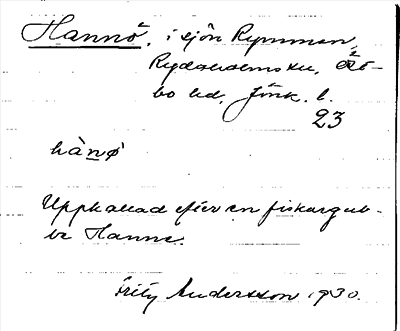 Hannö, i sjön Rymmen,
Rydaholms sn, Öst-
bo hd, Jönk. l.
23
hànø
Uppkallad efter en fiskargub-
be Hanne.
Fritz Andersson 1930.